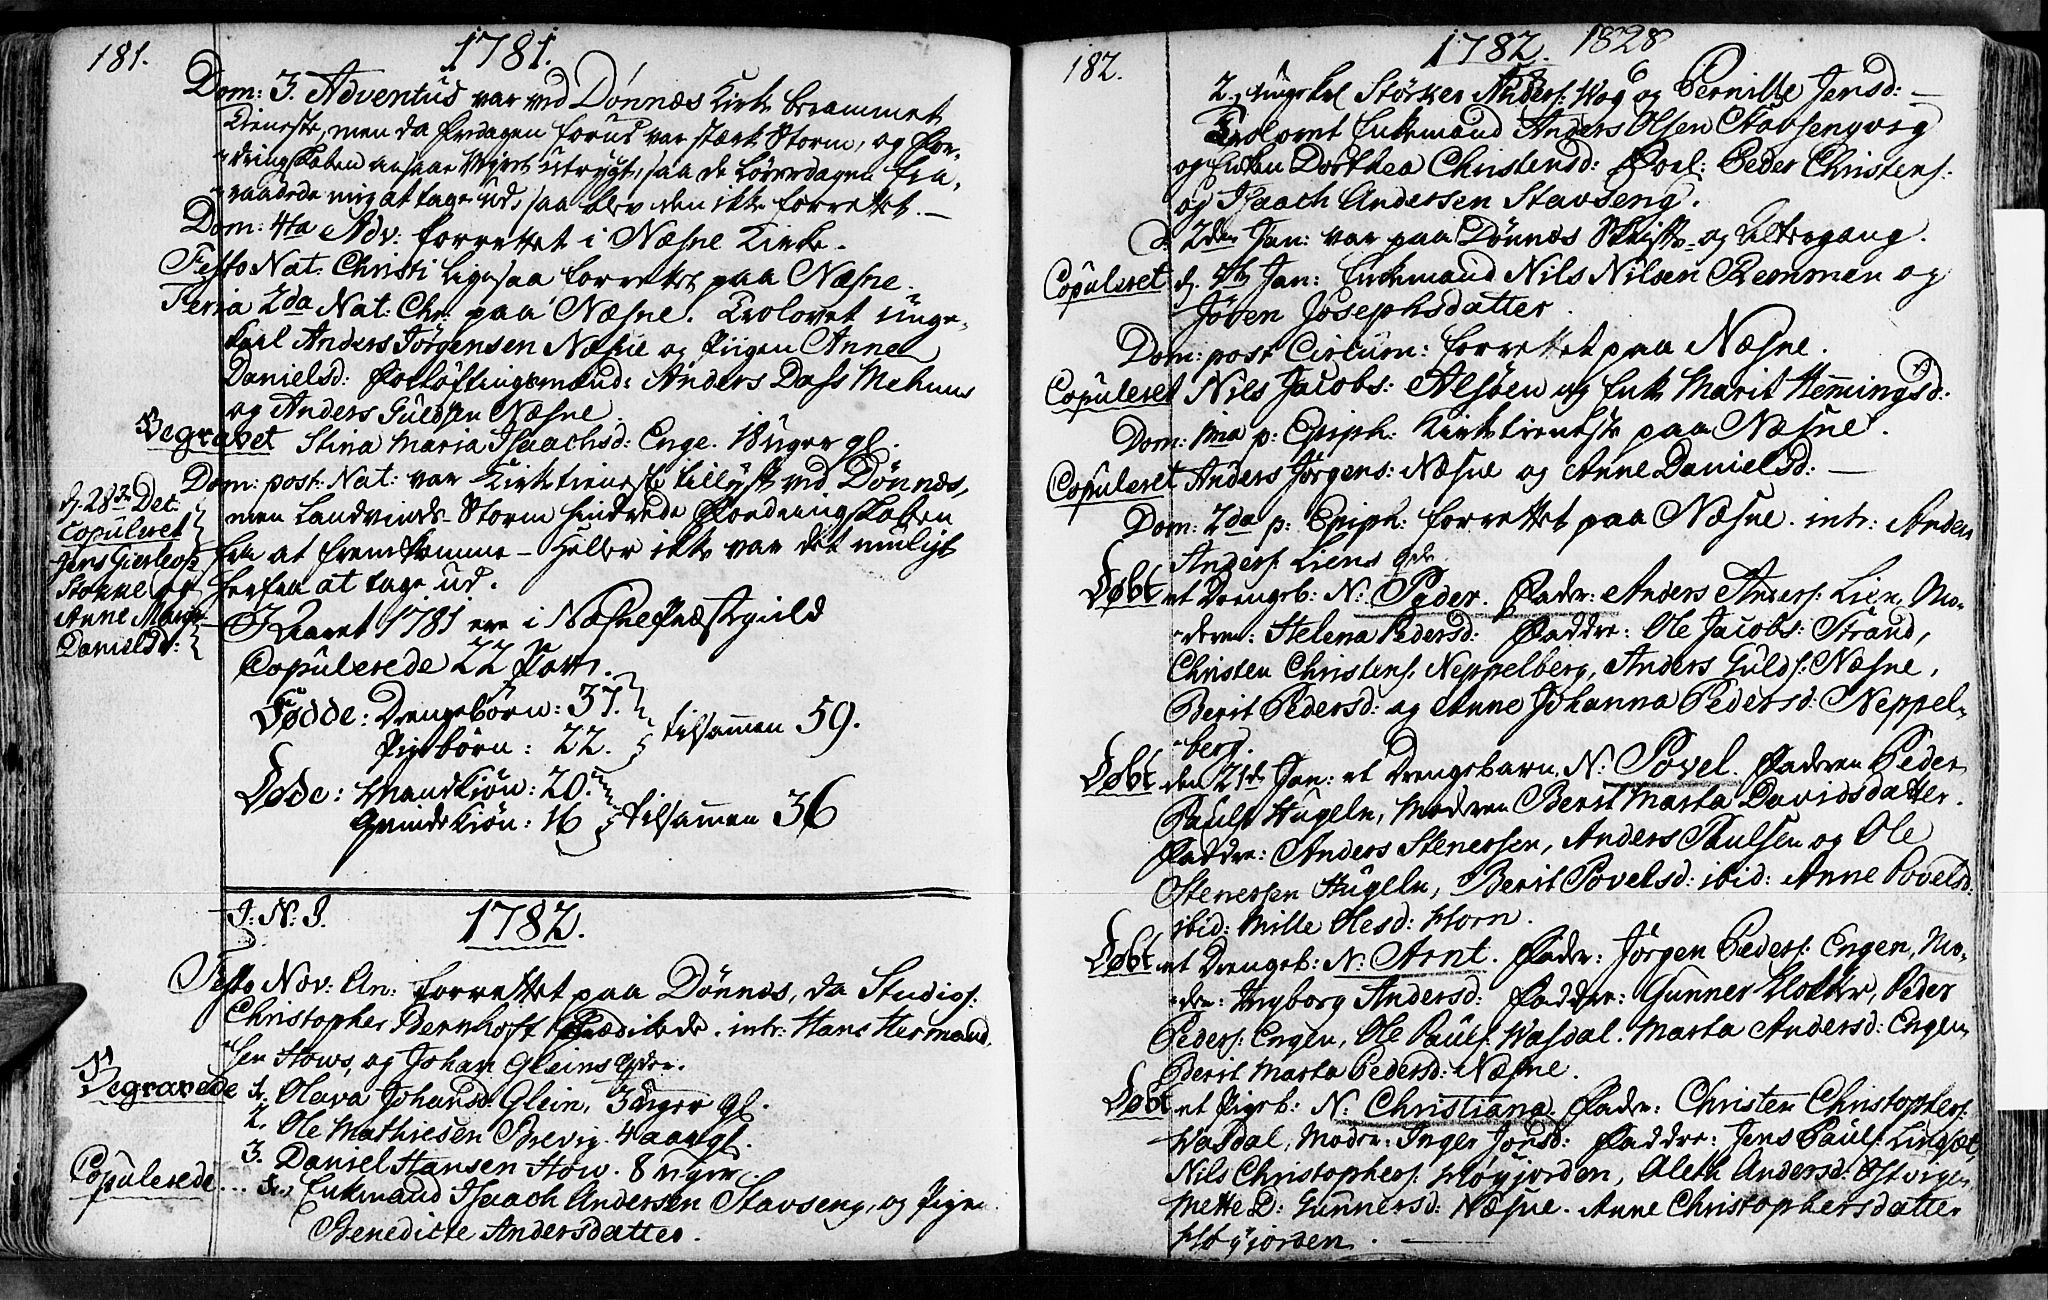 181.
1781.
Dom: 3. Adventus var ved Dönnæs Kirke berammet
tieneste, men da Fredagen forud var stærk Storm, og For-
dringskaben ansaae Vejret utrygt, saa de Löverdagen fra-
raadede mig at tage ud, saa blev den ikke forrettet. -
Dom: 4ta Adv: forrettet i Næsne Kirke.
Festo Nat: Christi ligesaa forrettet paa Næsne.
Feria 2da Nat: Chr: paa Næsne. Trolovet unge-
karl Anders Jörgensen Næsne og Pigen Anne
Danielsd: Forlöftingsmænd: Anders Dass
og Anders Guldsen Næsne.
Begravet Stina Maria Isaachsd: Enge. 18 uger gl.
Dom: post: Nat: var Kirketieneste tillyst ved Dönnæs,
men Landvinds-Storm hindrede Fordringskaben
fra at fremkomme - Heller ikke var det muligt
herfra at tage ud.
d. 28de Dec.
Copuleret
Jens
og
Anne Marie
Danielsdr:
I Aaret 1781 ere i Næsne Præstegield
Copulerede 22 Par.
Födde: Drengebörn: 37.
Pigebörn: 22. tilsammen 59.
Döde: Mandkiön: 20.
Qvindekiön: 16 tilsammen 36
J: N: J. 1782.
Festo Nov: An: forrettet paa Dönnæs, da Studios:
Christopher Bernhoft prædikede. intr: Hans Hermand
sen Stows, og Johan Gleins Qder.
Begravede 1. Olava Johansd: Glein, 3 uger gl.
2. Ole Mathiesen Brevig. 4 aar gl.
3. Daniel Hansen Stow. 8 uger
Copulerede 1. Enkemand Isaach Andersen Stavseng, og Pigen
Benedicte Andersdatter.
182.
1782. 1828
2., ungekarl Störker Anders: Wog og Pernille Jensd: -
Trolovet Enkemand Anders Olsen Stavsengvig
og Enken Dorthea Christensd: Forl: Peder Christens:
og Isaach Andersen Stavseng.
d. 2den Jan: var paa Dönnæs Skrifte- og Altergang.
Copuleret d. 4de Jan: Enkemand Nils Nilsen Remmen og
Jöven Josephsdatter.
Dom: post Circum: forrettet paa Næsne.
Copuleret Nils Jacobs: Alsöen og Enke Marit Hemmingsd:
Dom: 1ma p: Epiph: Kirketieneste paa Næsne.
Copuleret Anders Jörgens: Næsne og Anne Danielsd: -
Dom: 2da p: Epiph: forrettet paa Næsne. intr: Anders
Anders: Liens Qde
Döbt et Drengeb: N: Peder. Fader: Anders Anders: Lien, Mo-
deren: Helena Pedersd: Faddre: Ole Jacobs: Strand,
Christen Christens: Neppelberg, Anders Gulds: Næsne,
Berit Pedersd: og Anne Johanna Pedersd: Neppel-
berg.
Döbt den 21de Jan: et Drengebarn, N: Povel. Faderen Peder
Pauls: Hugeln, Moderen Berit Marta Davidsdatter.
Faddre: Anders Stenersen, Anders Paulsen og Ole
Stenersen Hugeln, Berit Povelsd: ibid: Anne Povelsd:
ibid: Mille Olesd: Horn.
Döbt et Drengeb: N: Arnt. Fader: Jörgen Peders: Engen, Mo-
der: Ingborg Andersd: Faddre: Gunner Peder
Peders: Engen, Ole Pauls: Wasdal. Marta Andersd: Engen
Berit Marta Pedersd: Næsne.
Döbt et Pigeb: N: Christiana. Fader: Christen Christophers:
Wasdal, Moder: Inger Jonsd: Faddre: Jens Pauls:
Nils Christophers: Höyjorden, Aleth Andersd:
Mette D: Gunnersd: Næsne. Anne Christophersdatter
Höyjorden.